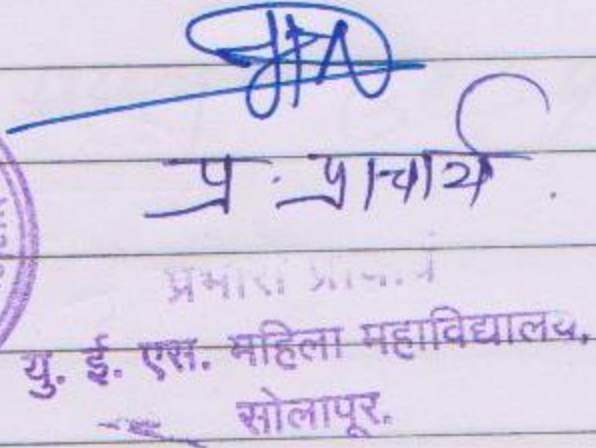 प्र. प्राचार्य.
प्रभारी प्राचार्य
यु. ई. एस. महिला महाविद्यालय,
सोलापूर.